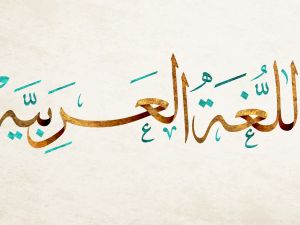 للُّغَةُ العَرَبِيَّة